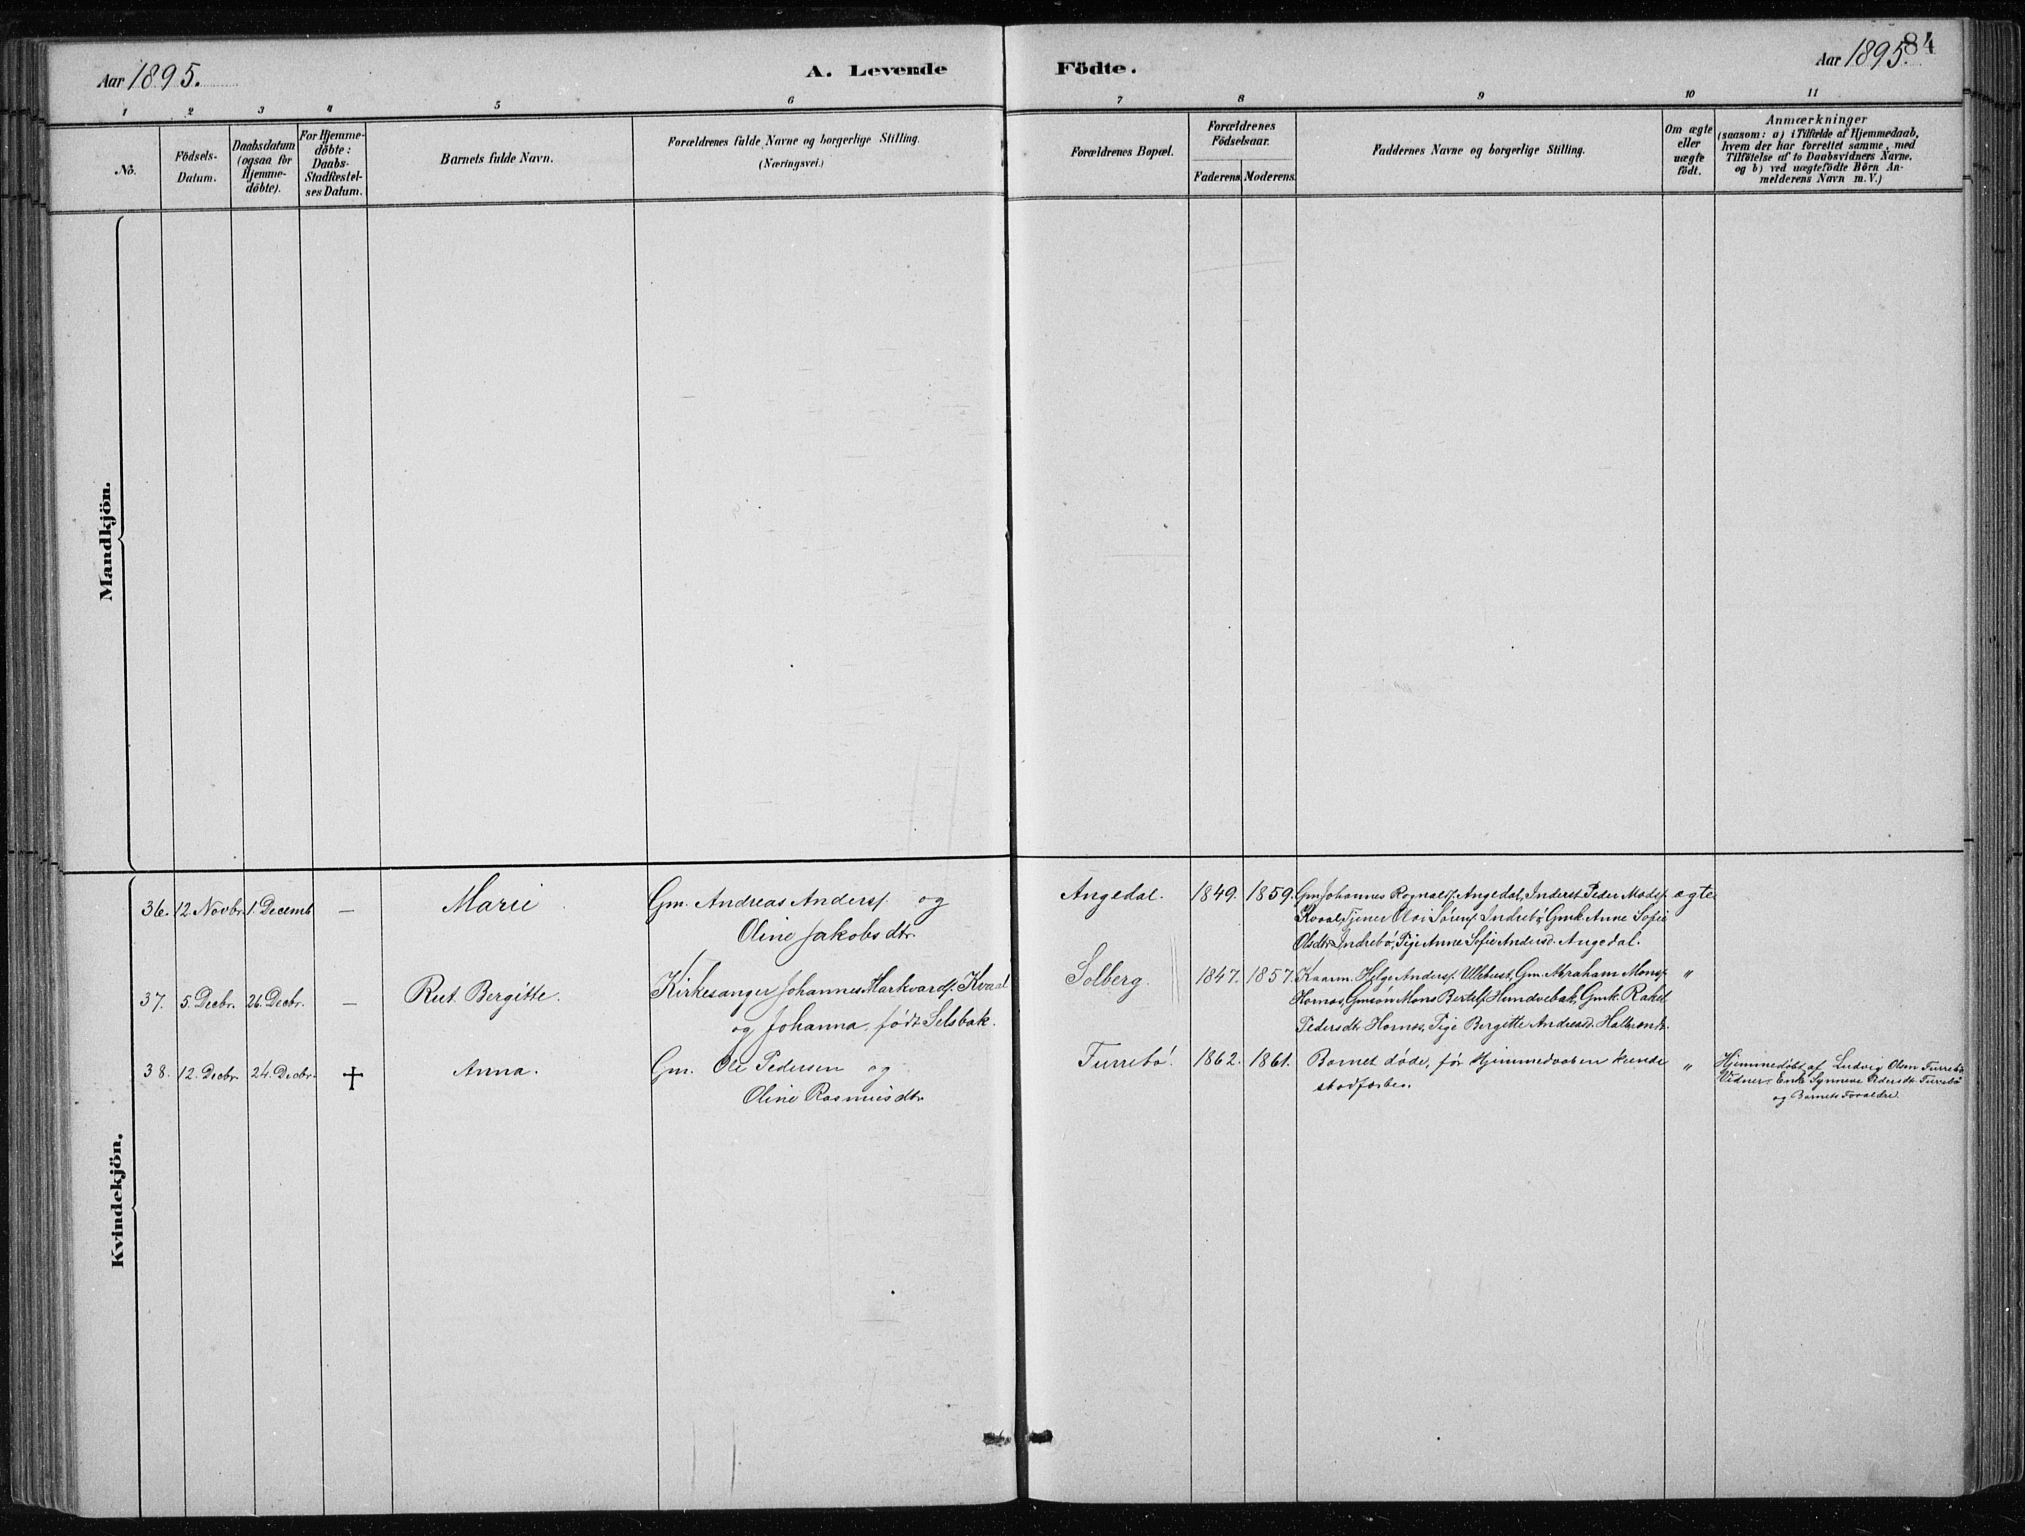 84
Aar 1895. A. Levende Födte. Aar 1895.
1 2 3 4 5 6 7 8 9 10 11
No.
Födsels-
Datum.
Daabsdatum
(ogsaa for
Hjemme-
döbte).
For Hjemme-
döbte:
Daabs-
Stadfæstel-
ses Datum.
Barnets fulde Navn.
Forældrenes fulde Navne og borgerlige Stilling.
(Næringsvei.)
Forældrenes Bopæl.
Forældrenes
Födselsaar.
Faderens. Moderens.
Faddernes Navne og borgerlige Stilling.
Om ægte
eller
uægte
födt.
Anmærkninger
(saasom: a) i Tilfælde af Hjemmedaab,
hvem der har forrettet samme, med
Tilföielse af to Daabsvidners Navne,
og b) ved uægtefödte Börn An-
melderens Navn m. V.)
Mandkjön.
Kvindekjön.
36. 12. Novbr. 1. Decemb. — Marie. Gm. Andreas Anders. og
Oline Jakobsdtr.
Angedal. 1849. 1859. Gm. Johannes Rognals. Angedal, Inderst Peder Mads.
Kvaal, Tjener Oloi Sørens. Indrebø, Gmk. Anne Sofie
Olsdtr. Indrebø, Pige Anne Sofie Andersd. Angedal.
ægte
37. 5. Decbr. 26. Decbr. — Rut Bergitte. Kirkesanger Johannes Markvards. Kvaal
og Johanna, født Selsbak.
Solberg. 1847. 1857. Kaarm. Helge Anders. Ullebust, Gm. Abraham Mons.
Hornes, Gmsøn Mons Bertels. Hundvebak, Gmk. Rakel
Pedersdtr. Hornes, Pige Bergitte Andreasd. Halbrendt.
"
38. 12. Decbr. 24. Decbr. † Anna. Gm. Ole Pedersen og
Oline Rasmusdtr.
Furrebø. 1862. 1861. Barnet døde, før Hjemmedaaben kunde
stadfæstes.
"
Hjemmedøbt af Ludvig Olsen Furrebø
Vidner: Enke Synneve Pedersdtr. Furrebø
og Barnets Forældre.